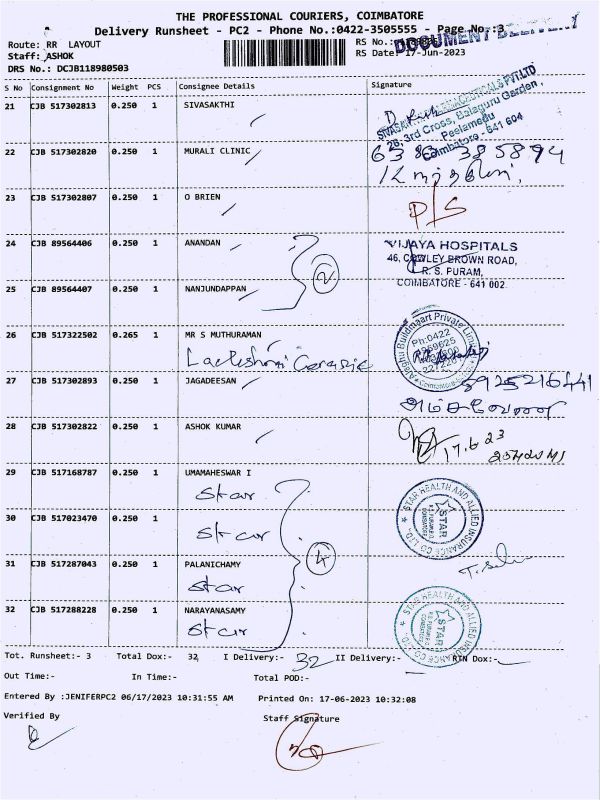 THE PROFESSIONAL COURIERS, COIMBATORE
Delivery Runsheet - PC2 - Phone No.:0422-3505555 - Page No.:3
Route: RR LAYOUT
RS No.:
DOCUMENT
Staff: ASHOK
RS Date: 17-Jun-2023
DRS No.: DCJB118980503
S No Consignment No Weight PCS Consignee Details Signature
21 CJB 517302813 0.250 1 SIVASAKTHI
PVT.LTD
26, 3rd Cross, Balaguru Garden,
Peelamedu
Coimbatore - 641 604
22 CJB 517302820 0.250 1 MURALI CLINIC
6383 385894
23 CJB 517302807 0.250 1 O BRIEN
P/S
24 CJB 89564406 0.250 1 ANANDAN
VIJAYA HOSPITALS
46, COWLEY BROWN ROAD,
R. S. PURAM,
COIMBATORE - 641 002.
2
25 CJB 89564407 0.250 1 NANJUNDAPPAN
26 CJB 517322502 0.265 1 MR S MUTHURAMAN
Buildmaart Private Limited
Ph:0422
27 CJB 517302893 0.250 1 JAGADEESAN
5925216441
28 CJB 517302822 0.250 1 ASHOK KUMAR
17.6.23
29 CJB 517168787 0.250 1 UMAMAHESWAR I
Star
STAR HEALTH AND ALLIED INSURANCE CO LTD.
STAR
30 CJB 517023470 0.250 1
Star
4
31 CJB 517287043 0.250 1 PALANICHAMY
Star
32 CJB 517288228 0.250 1 NARAYANASAMY
Star
STAR HEALTH AND ALLIED INSURANCE CO LTD.
STAR
Tot. Runsheet:- 3 Total Dox:- 32 I Delivery:- 32 II Delivery:- RTN Dox:-
Out Time:- In Time:- Total POD:-
Entered By :JENIFERPC2 06/17/2023 10:31:55 AM Printed On: 17-06-2023 10:32:08
Verified By Staff Signature